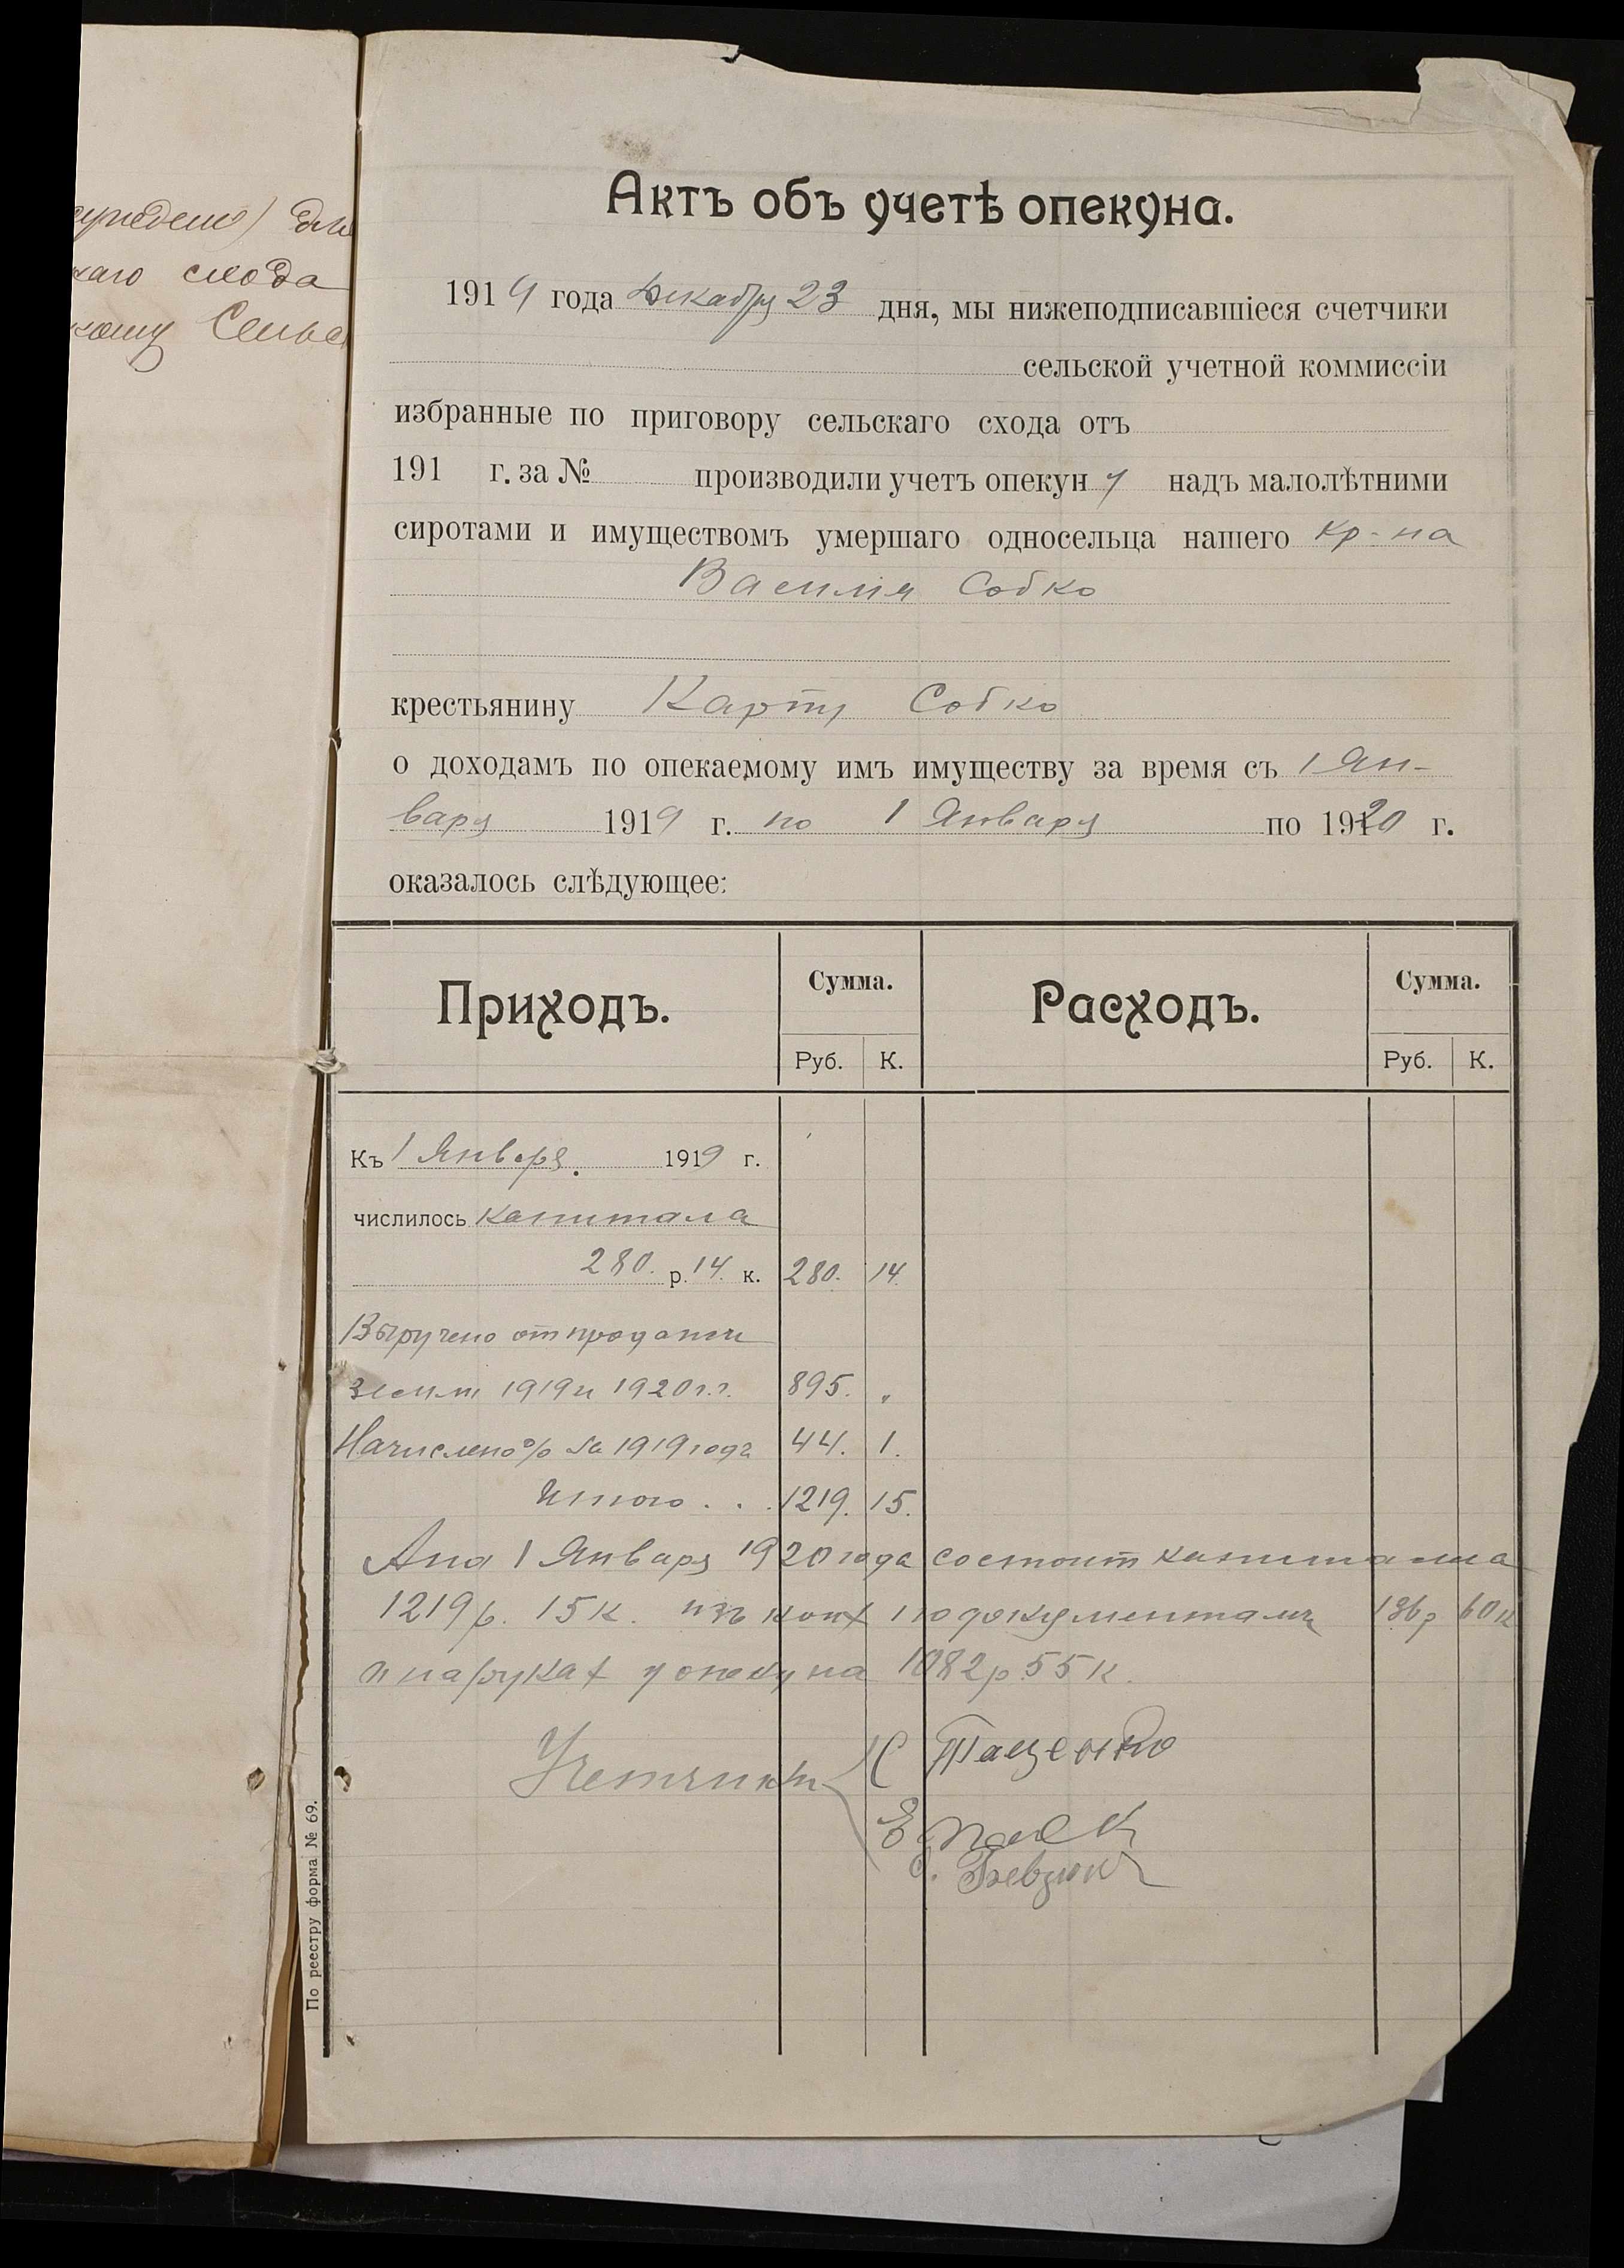 каго схода
кому Сельс
Актъ объ учетѣ опекуна.
1919 года Декабря 23 дня, мы нижеподписавшіеся счетчики
сельской учетной коммиссіи
избранные по приговору сельскаго схода отъ
191 г. за № производили учетъ опекун у надъ малолѣтними
сиротами и имуществомъ умершаго односельца нашего кр-на
Василия Собко
крестьянину Карпу Собко
о доходамъ по опекаемому имъ имуществу за время съ 1 Ян-
варя 1919 г. по 1 Января по 1920 г.
оказалось слѣдующее:
Приходъ. Сумма. Расходъ. Сумма.
Руб. К. Руб. К.
Къ 1 Января 1919 г.
числилось капитала
280. р. 14. к. 280. 14.
Выручено от продажи
земли 1919 и 1920 г.г. 895. "
Начислено % за 1919 годъ 44. 1.
Итого . . . 1219. 15.
А на 1 Января 1920 года состоит капитала
1219 р. 15 к. изъ коих по документамъ 136 р 60 к
и на руках у опекуна 1082 р. 55 к.
Учетчики К Пащенко
Е
По реестру форма № 69.